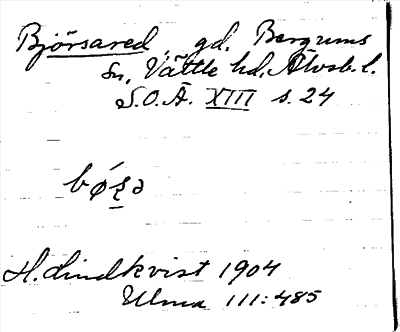 Björsared, gd. Bergums
sn, Vättle hd, Älvsb. l.
S.O.Ä. XIII s. 24
H. Lindkvist 1904
Ulma 111:485